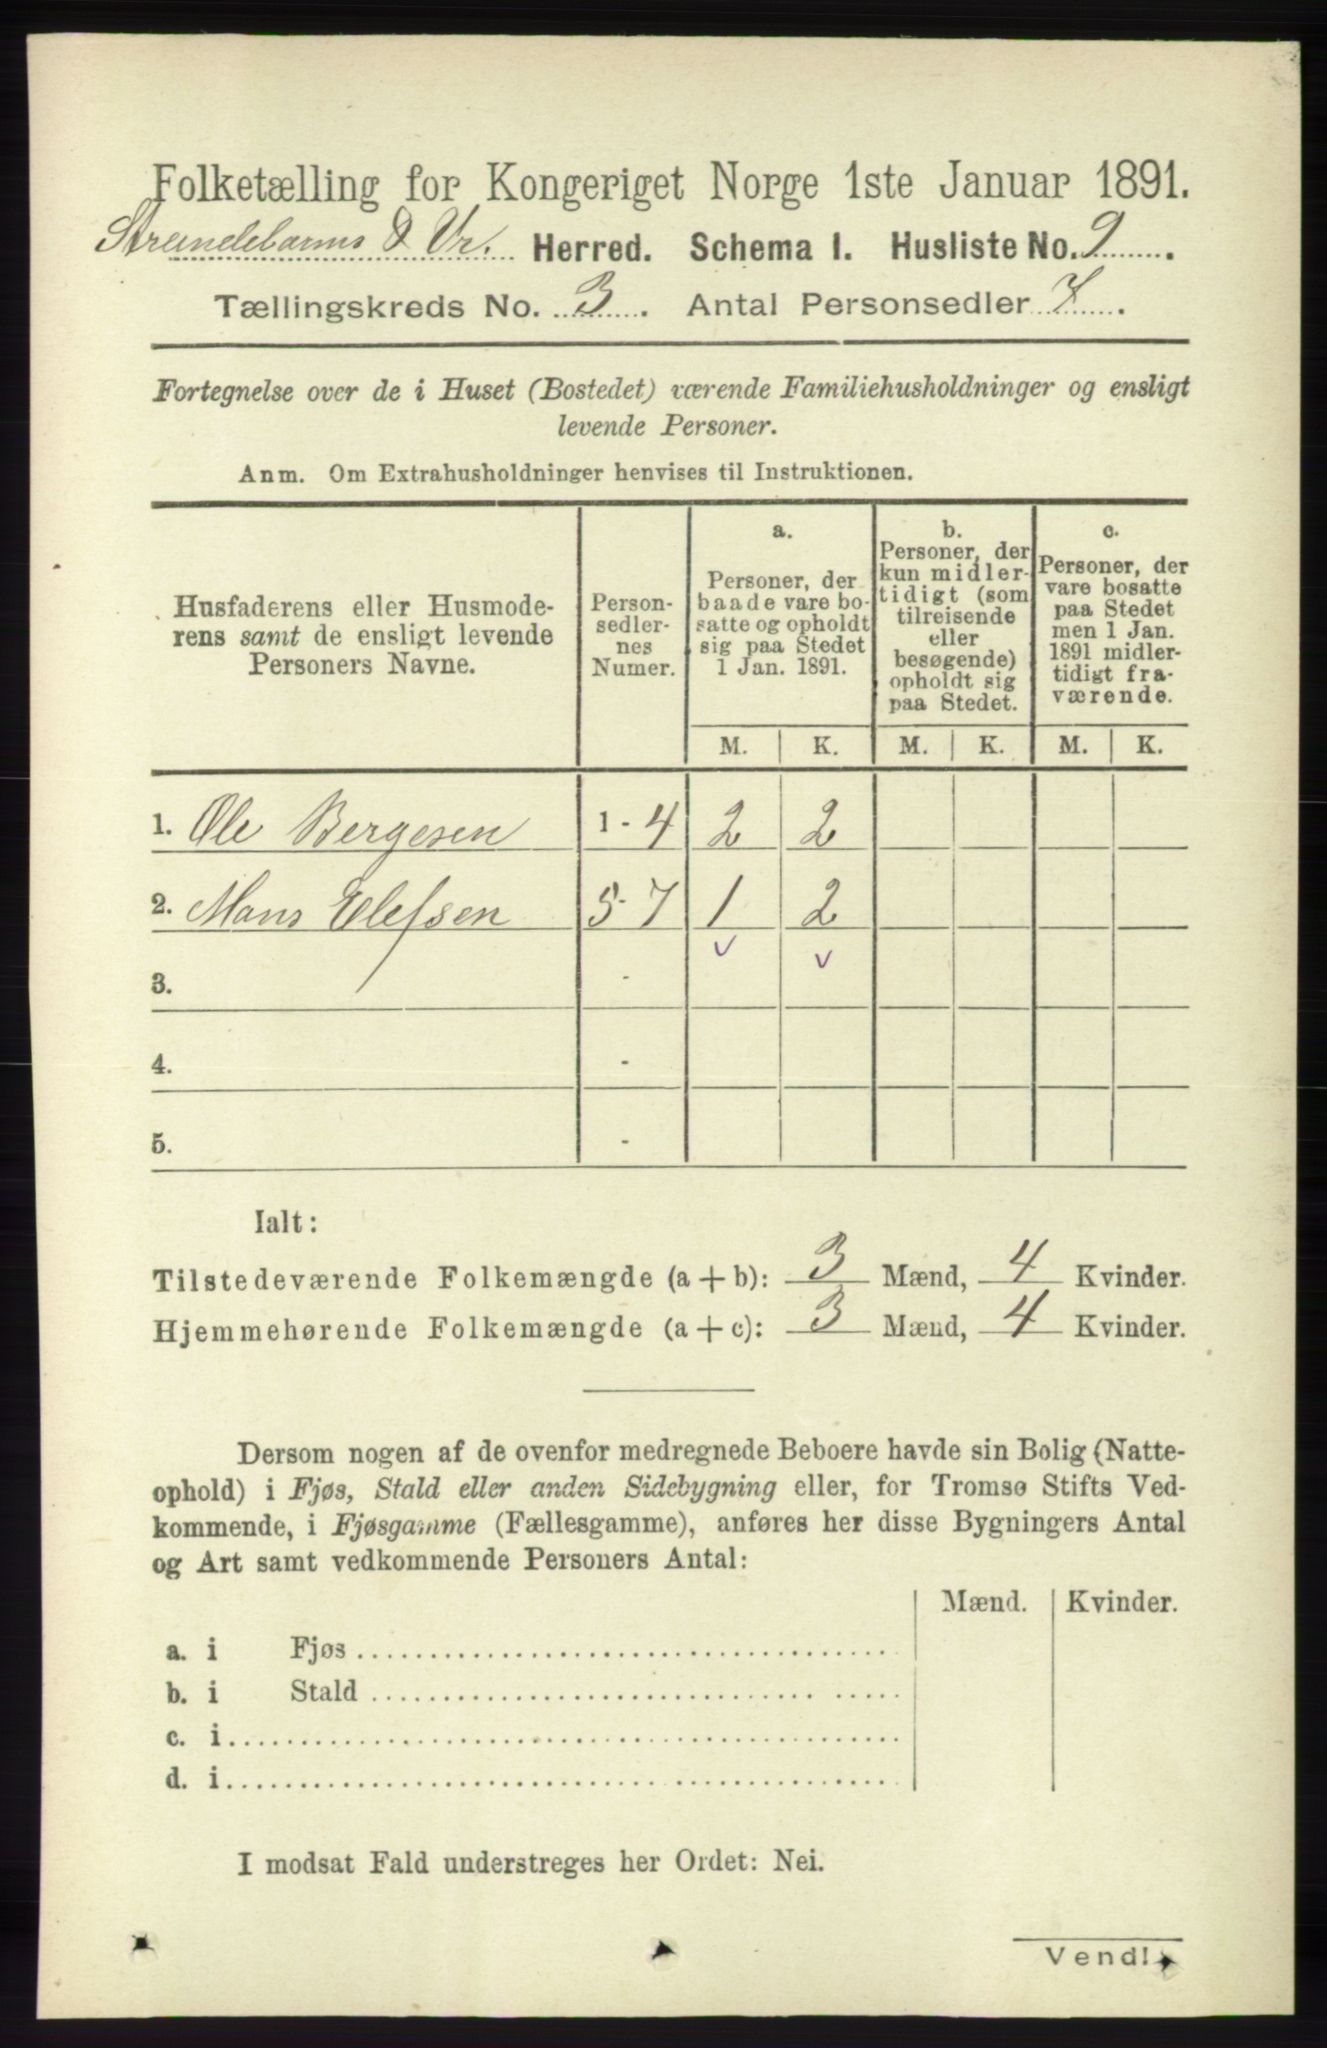 Folketælling for Kongeriget Norge 1ste Januar 1891.
Strandebarms & Vr. Herred. Schema 1. Husliste No. 9.
Tællingskreds No. 3. Antal Personsedler 7.
Fortegnelse over de i Huset (Bostedet) værende Familiehusholdninger og ensligt
levende Personer.
Anm. Om Extrahusholdninger henvises til Instruktionen.
Husfaderens eller Husmode-
rens samt de ensligt levende
Personers Navne.
Person-
sedler-
nes
Numer.
a.
Personer, der
baade vare bo-
satte og opholdt
sig paa Stedet
1 Jan. 1891.
b.
Personer, der
kun midler-
tidigt (som
tilreisende
eller
besøgende)
opholdt sig
paa Stedet.
c.
Personer, der
vare bosatte
paa Stedet
men 1 Jan.
1891 midler-
tidigt fra-
værende.
M. K. M. K. M. K.
1. Ole Bergesen 1 - 4 2 2
2. Mons Elefsen 5 - 7 1 2
3. -
4. -
5. -
Ialt:
Tilstedeværende Folkemængde (a + b): 3 Mænd, 4 Kvinder.
Hjemmehørende Folkemængde (a + c): 3 Mænd, 4 Kvinder.
Dersom nogen af de ovenfor medregnede Beboere havde sin Bolig (Natte-
ophold) i Fjøs, Stald eller anden Sidebygning eller, for Tromsø Stifts Ved-
kommende, i Fjøsgamme (Fællesgamme), anføres her disse Bygningers Antal
og Art samt vedkommende Personers Antal:
Mænd. Kvinder.
a. i Fjøs
b. i Stald
c. i
d. i
I modsat Fald understreges her Ordet: Nei.
Vend!